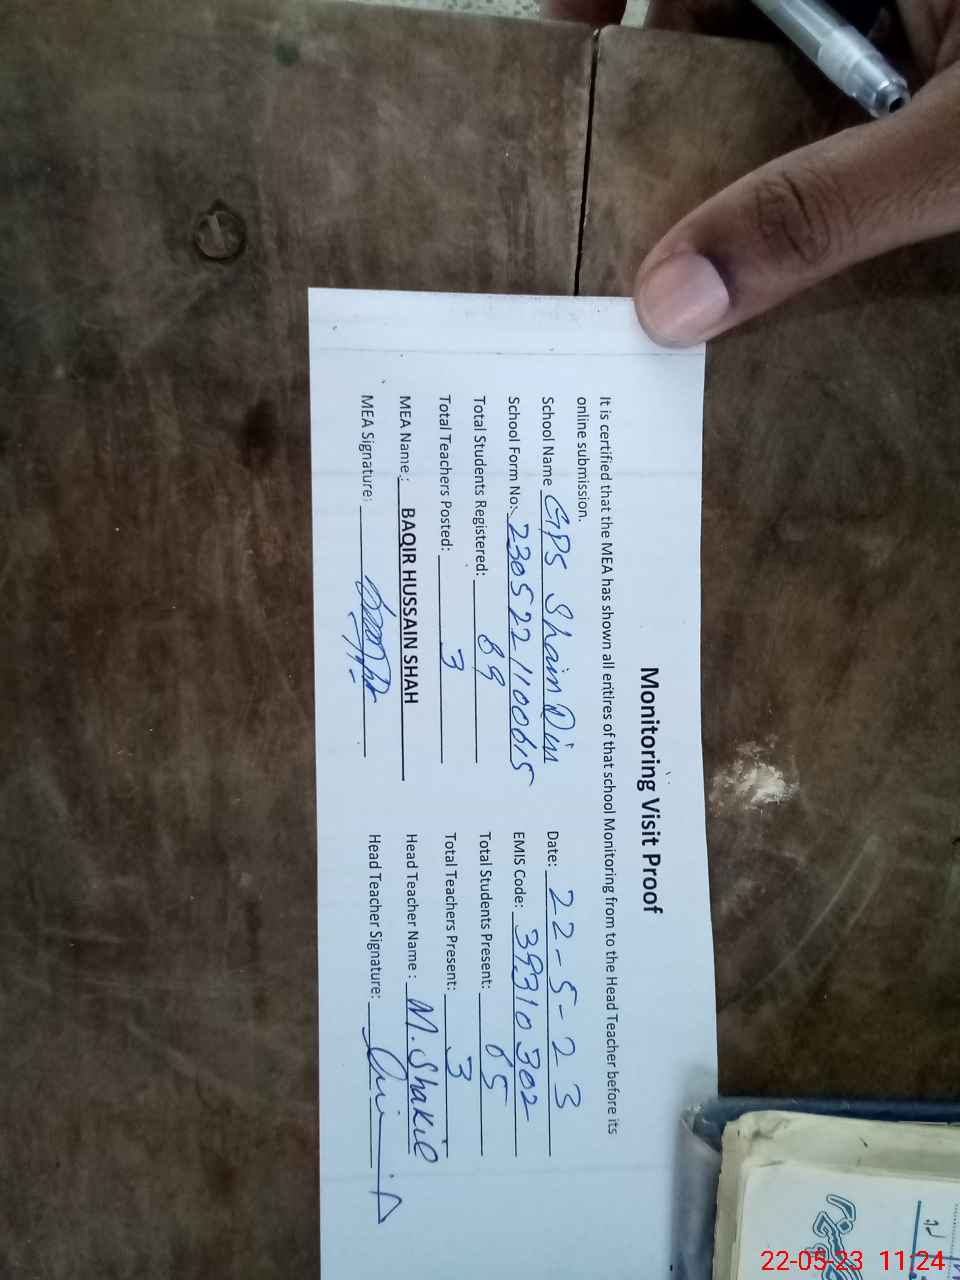 Monitoring Visit Proof
It is certified that the MEA has shown all entires of that school Monitoring from to the Head Teacher before its
online submission.
School Name GPS Shain Din Date: 22-5-23
School Form No: 2305221100615 EMIS Code: 39310302
Total Students Registered: 89 Total Students Present: 65
Total Teachers Posted: 3 Total Teachers Present: 3
MEA Name: BAQIR HUSSAIN SHAH Head Teacher Name: M. Shakil
MEA Signature: Head Teacher Signature:
22-05-23 11:24